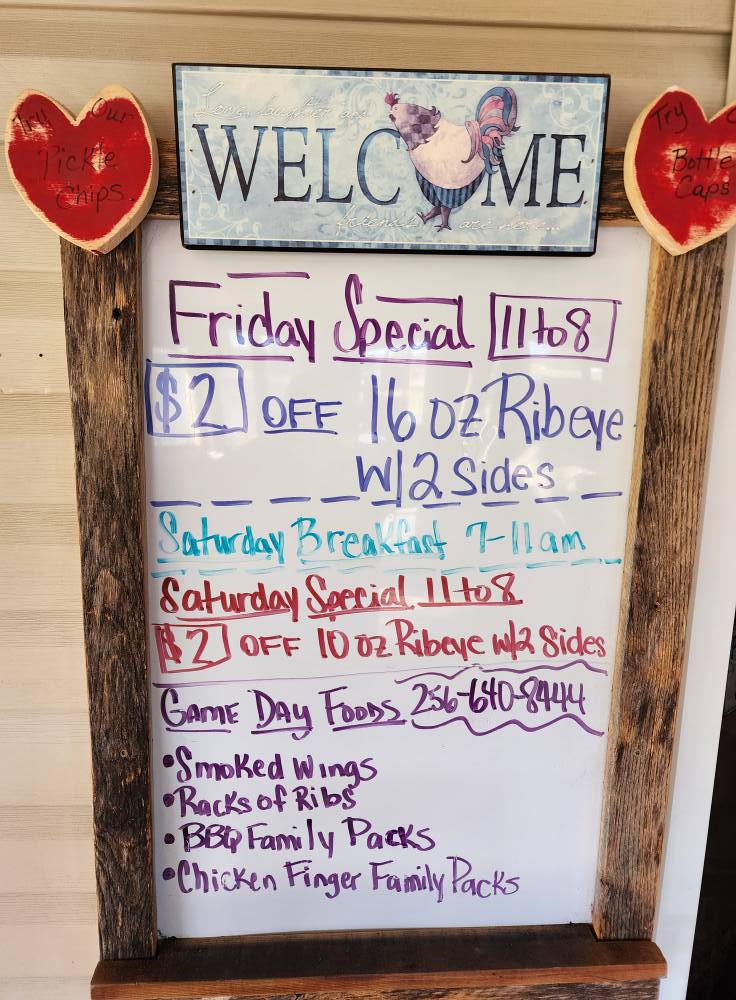 Try Our
Pickle
Chips.
Love, laughter and
WELCOME
friends are here...
Try
Bottle
Caps
Friday Special 11 to 8
$2 OFF 16 oz Ribeye
W/2 Sides
Saturday Breakfast 7-11am
Saturday Special 11 to 8
$2 OFF 10 oz Ribeye w/2 Sides
GAME DAY FOODS 256-640-8444
•Smoked Wings
•Racks of Ribs
•BBQ Family Packs
•Chicken Finger Family Packs